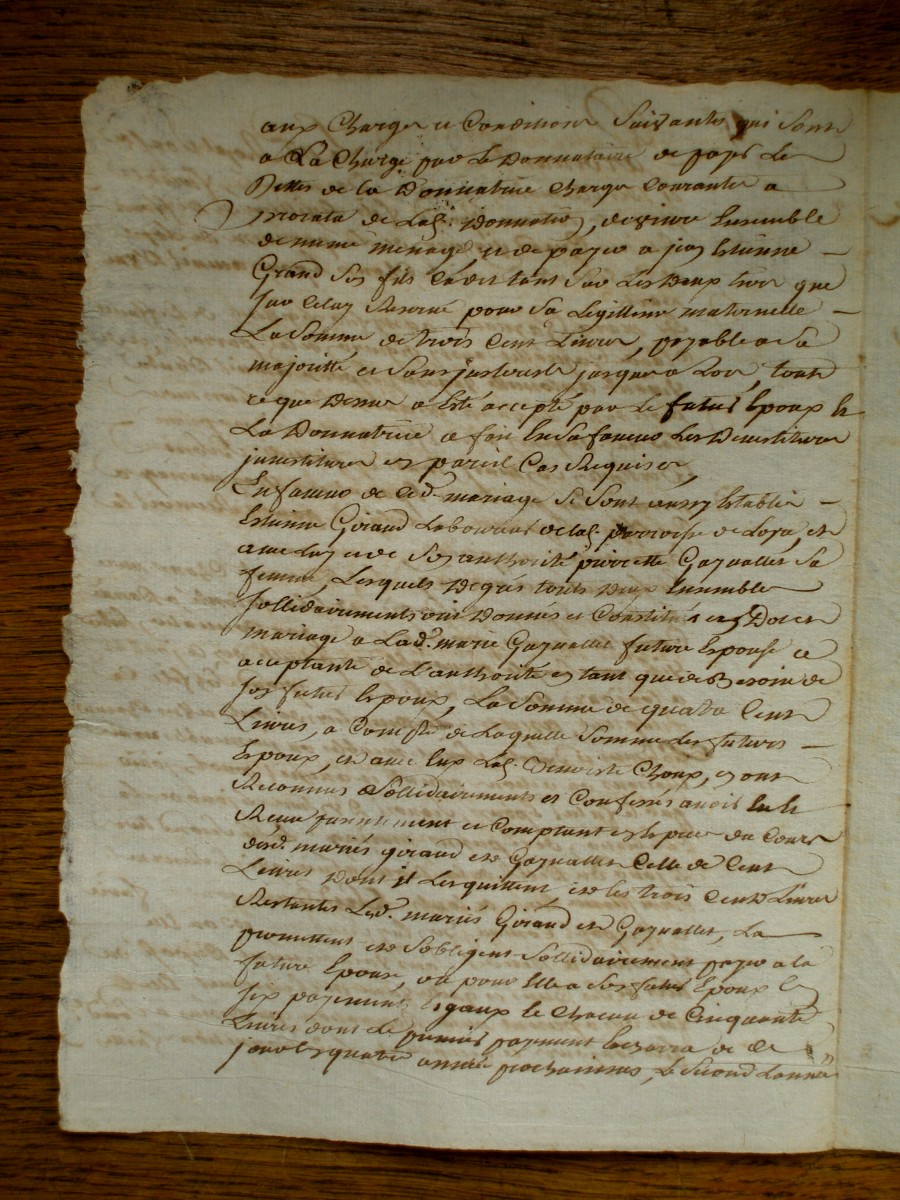 aux Charges et Conditions Suivantes qui Sont
a La Charge par Le Donnataire de payer Le
Dettes de la Donnatrice Charges Courantes a
prorata de Lad. Donnation, de vivre Ensemble
de meme menage et de payer a jean Etienne
Girand Son fils Cadet tant Sur Les deux tiers que
Sur Celuy Reservé pour Sa Legitime maternelle
La Somme de trois Cent Livres, payable a Sa
majorité et Sans jnterest jusques a Lors, tout
ce que Dessus a Eté accepté par Le futur Epoux Et
La Donnatrice a fait En Sa faveur Les Devestitures
jnvestitures en pareil Cas Requises
En faveur de Ced. mariage Se Sont aussy Etablis
Etienne Giraud Laboureur de lad. parroisse de et
avec Luy et de Son authorité pierrette Gaynallet Sa
femme, Lesquels De gré touts Deux Ensemble
Sollidairements ont Donnés et Constitué en Dot et
mariage a Lad. marie Gaynallet future Epouse ce
acceptante de L'authorité en tant que de Besoin de
Son futur Epoux, La Somme de quatre Cent
Livres, a Compte de Laquelle Somme Les futurs
Epoux, et avec Eux Lad. Benoiste Choux, ont
Reconnus Sollidairements et Confessés avoir Eu Et
Receu presentement et Comptant en Espece du Cours
desd. mariés Giraud et Gaynallet Celle de Cent
Livres Dont jls Les quittent et les trois Cents Livres
Restantes Lesd. mariés Giraud et Gaynallet, La
promettent et S'obligent Sollidairement payer a la
future Epouse, ou pour Elle a Son futur Epoux En
Six payements Egaux le Chacun de Cinquante
Livres dont Le premier payement Echerra de Ce
jour En quatre années prochaines, Le Second L'année